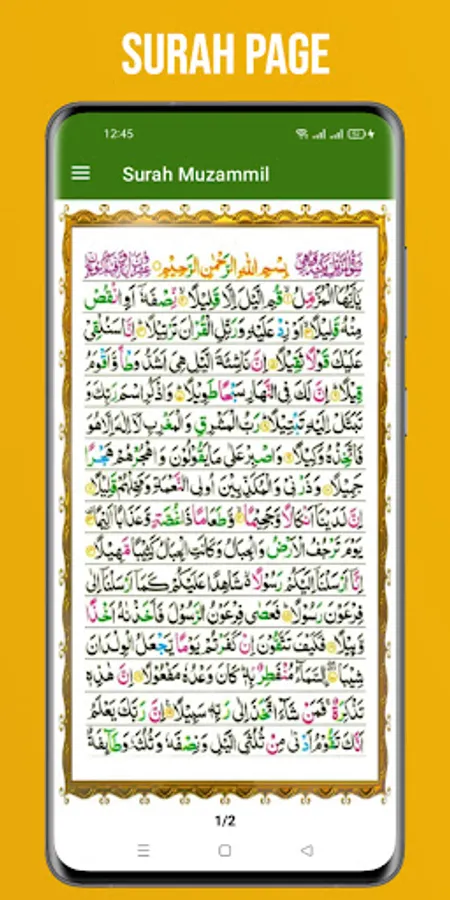 SURAH PAGE
12:45
Surah Muzammil
بِسْمِ اللهِ الرَّحْمٰنِ الرَّحِيْمِ
يٰۤاَيُّهَا الْمُزَّمِّلُ قُمِ الَّيْلَ اِلَّا قَلِيْلًا نِّصْفَهٗۤ اَوِ انْقُصْ
مِنْهُ قَلِيْلًا اَوْ زِدْ عَلَيْهِ وَرَتِّلِ الْقُرْاٰنَ تَرْتِيْلًا اِنَّا سَنُلْقِيْ
عَلَيْكَ قَوْلًا ثَقِيْلًا اِنَّ نَاشِئَةَ الَّيْلِ هِيَ اَشَدُّ وَطْاً وَّاَقْوَمُ
قِيْلًا اِنَّ لَكَ فِي النَّهَارِ سَبْحًا طَوِيْلًا وَاذْكُرِ اسْمَ رَبِّكَ وَ
تَبَتَّلْ اِلَيْهِ تَبْتِيْلًا رَبُّ الْمَشْرِقِ وَالْمَغْرِبِ لَاۤ اِلٰهَ اِلَّا هُوَ
فَاتَّخِذْهُ وَكِيْلًا وَاصْبِرْ عَلٰى مَا يَقُوْلُوْنَ وَاهْجُرْهُمْ هَجْرًا
جَمِيْلًا وَذَرْنِيْ وَالْمُكَذِّبِيْنَ اُولِي النَّعْمَةِ وَمَهِّلْهُمْ قَلِيْلًا
اِنَّ لَدَيْنَاۤ اَنْكَالًا وَّجَحِيْمًا وَّطَعَامًا ذَا غُصَّةٍ وَّعَذَابًا اَلِيْمًا
يَوْمَ تَرْجُفُ الْاَرْضُ وَالْجِبَالُ وَكَانَتِ الْجِبَالُ كَثِيْبًا مَّهِيْلًا
اِنَّاۤ اَرْسَلْنَاۤ اِلَيْكُمْ رَسُوْلًا شَاهِدًا عَلَيْكُمْ كَمَاۤ اَرْسَلْنَاۤ اِلٰى
فِرْعَوْنَ رَسُوْلًا فَعَصٰى فِرْعَوْنُ الرَّسُوْلَ فَاَخَذْنٰهُ اَخْذًا
وَّبِيْلًا فَكَيْفَ تَتَّقُوْنَ اِنْ كَفَرْتُمْ يَوْمًا يَّجْعَلُ الْوِلْدَانَ
شِيْبَا السَّمَآءُ مُنْفَطِرٌۢ بِهٖ كَانَ وَعْدُهٗ مَفْعُوْلًا اِنَّ هٰذِهٖ
تَذْكِرَةٌ فَمَنْ شَآءَ اتَّخَذَ اِلٰى رَبِّهٖ سَبِيْلًا اِنَّ رَبَّكَ يَعْلَمُ
اَنَّكَ تَقُوْمُ اَدْنٰى مِنْ ثُلُثَيِ الَّيْلِ وَنِصْفَهٗ وَثُلُثَهٗ وَطَآئِفَةٌ
1/2